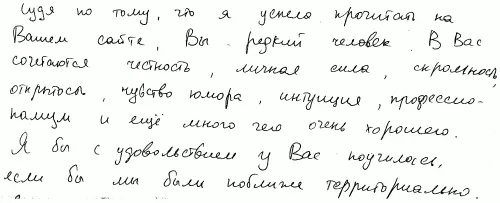 Судя по тому, что я успела прочитать на
Вашем сайте, Вы - редкий человек. В Вас
сочетаются честность, личная сила, скромность,
открытость, чувство юмора, интуиция, профессио-
нализм и ещё много чего очень хорошего.
Я бы с удовольствием у Вас поучилась,
если бы мы были поближе территориально.